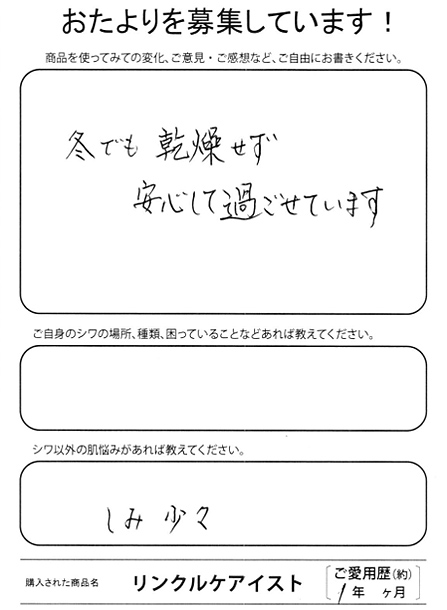 おたよりを募集しています！
商品を使ってみての変化、ご意見・ご感想など、ご自由にお書きください。
冬でも 乾燥せず
安心して過ごせています
ご自身のシワの場所、種類、困っていることなどあれば教えてください。
シワ以外の肌悩みがあれば教えてください。
しみ 少々
購入された商品名 リンクルケアイスト ご愛用歴(約)
1年 ヶ月